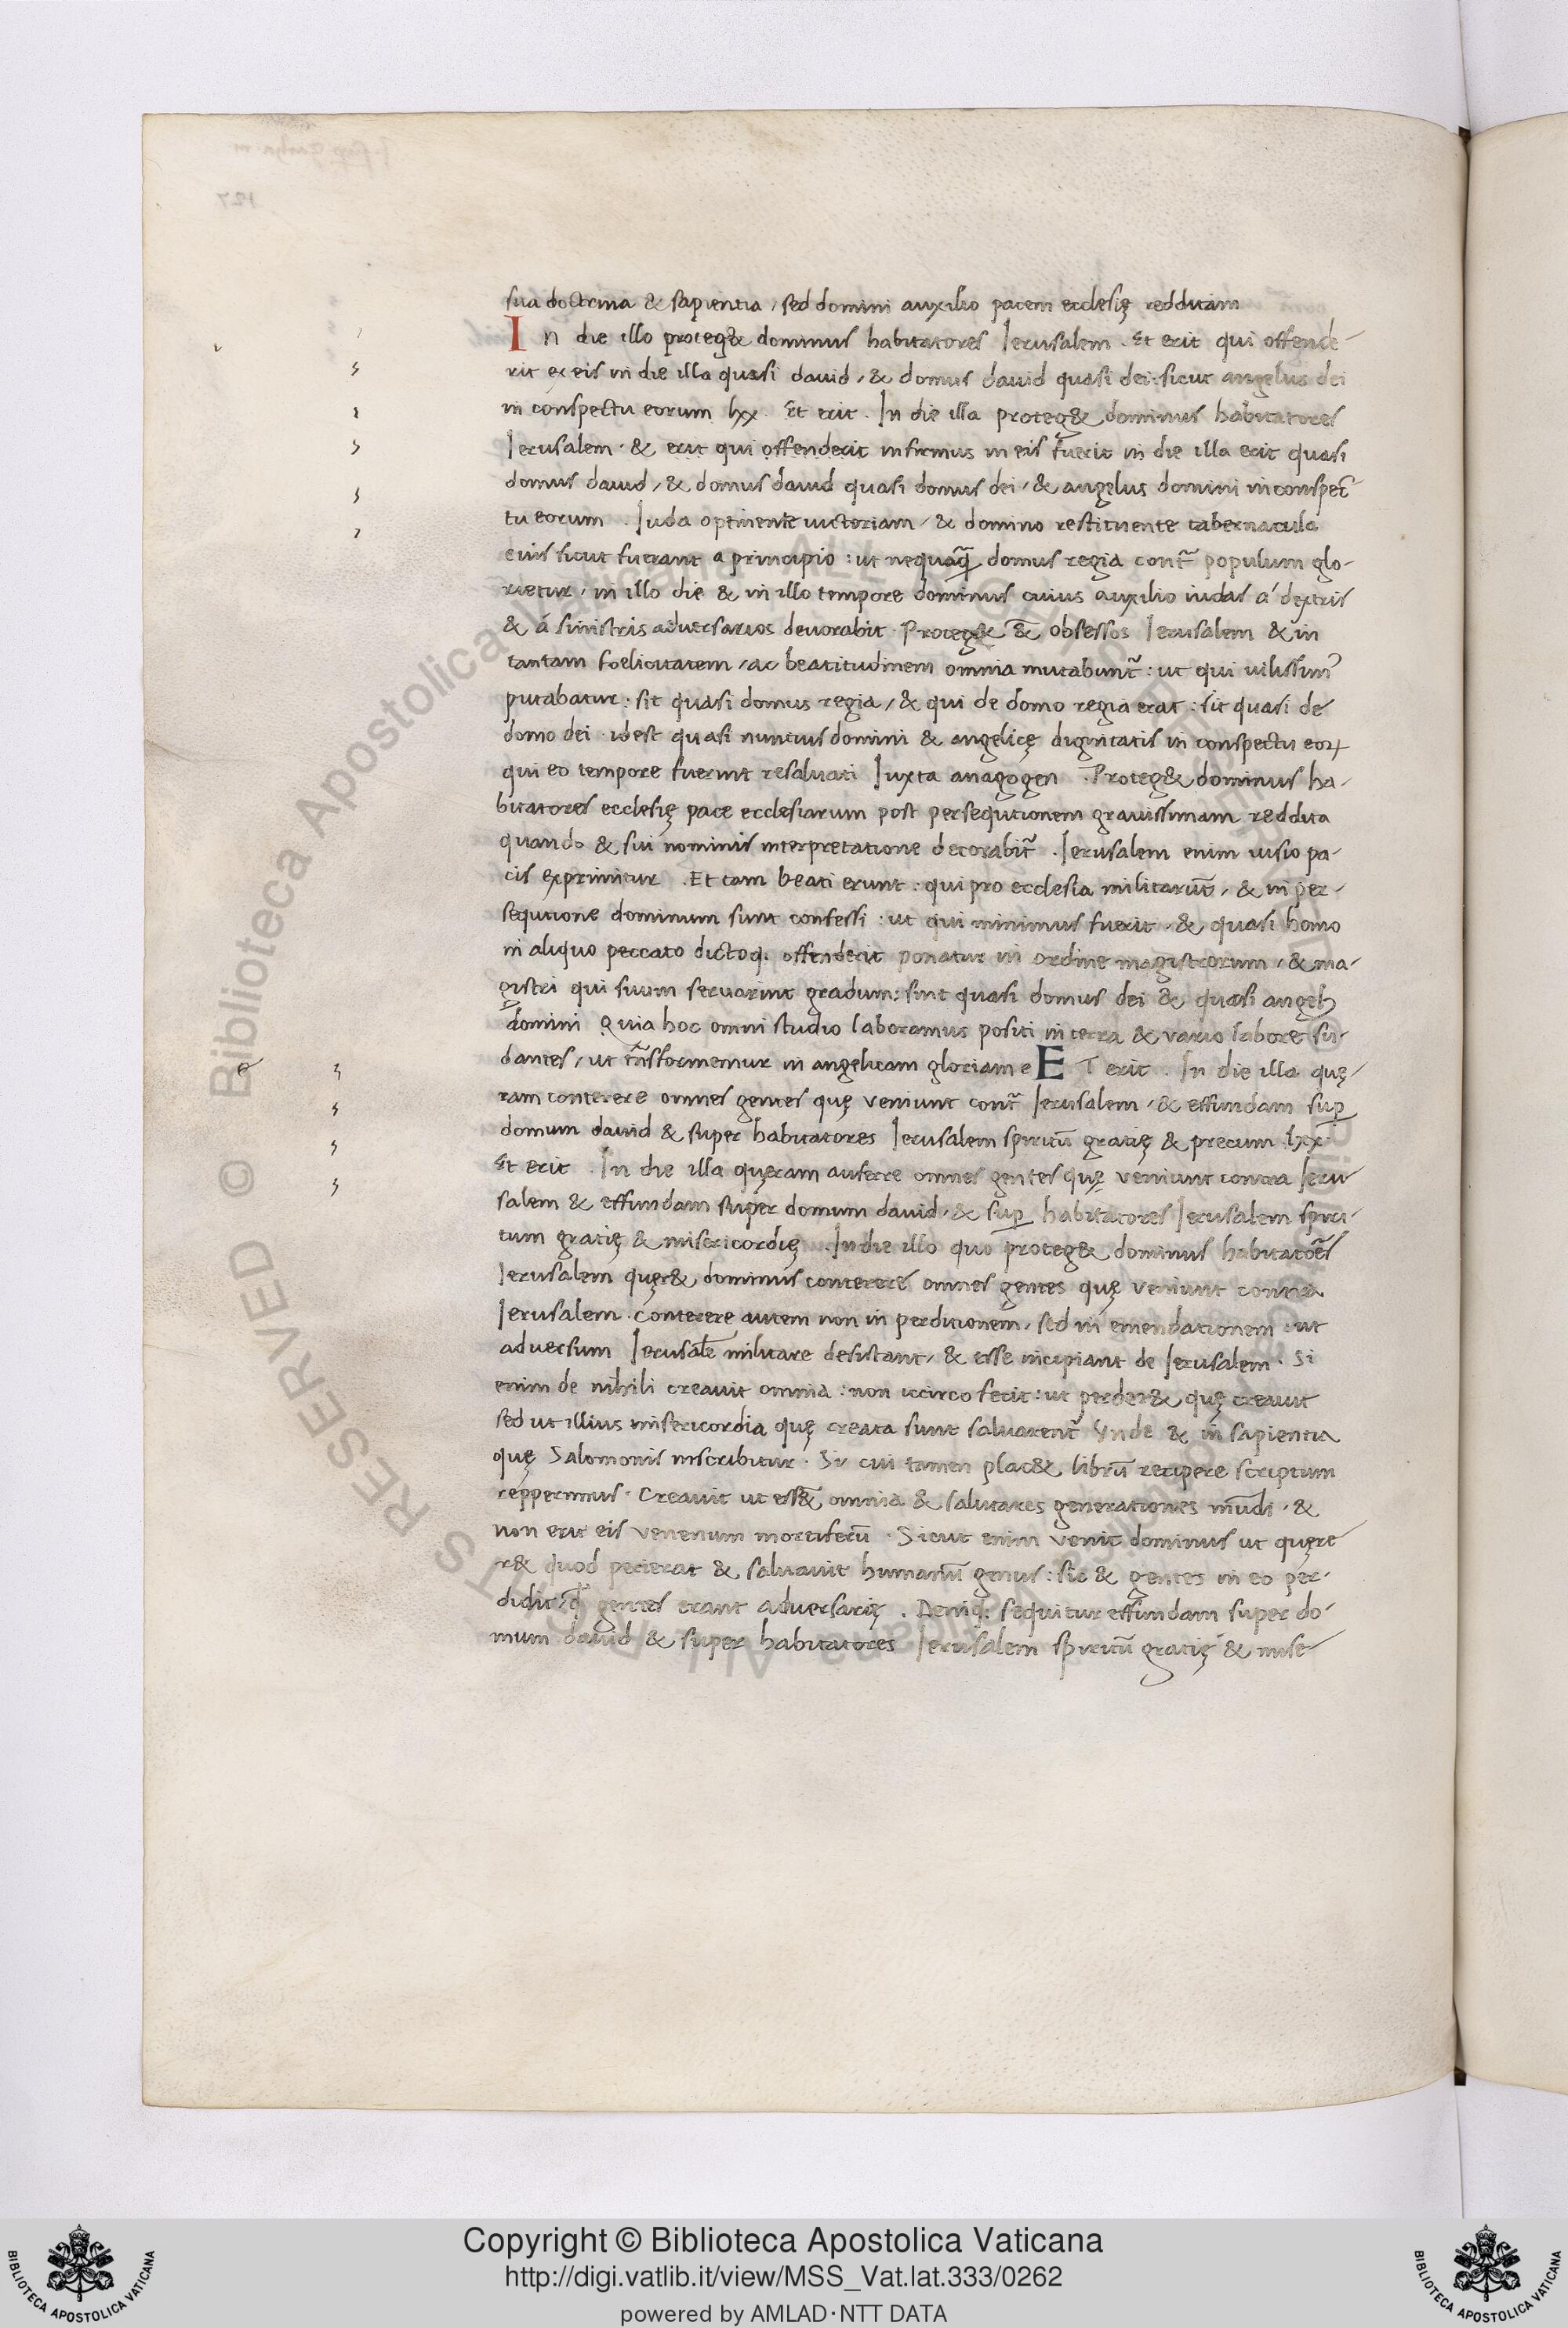 sua doctrina & sapientia, sed domini auxilio pacem ecclesię redditam
In die illo proteg& dominus habitatores Ierusalem. Et erit qui offende-
rit ex eis in die illa quasi dauid, & domus dauid quasi dei: sicut angelus dei
in conspectu eorum lxx. Et erit. In die illa proteg& dominus habitatores
Ierusalem. & erit qui offenderit infirmus in eis fuerit in die illa erit quasi
domus dauid, & domus dauid quasi domus dei, & angelus domini in conspec̄
tu eorum. Iuda optinente uictoriam, & domino restituente tabernacula
eius sicut fuerant a principio: ut nequaq̃ domus regia cont̃ populum glo-
rietur, in illo die & in illo tempore dominus cuius auxilio iudas á dextris
& á sinistris aduersarios deuorabit. Proteg& & obsessos Ierusalem & in
tantam foelicitatem, ac beatitudinem omnia mutabunt̃: ut qui uilissim᾽
putabatur: sit quasi domus regia, & qui de domo regia erat: sit quasi de
domo dei. idest quasi nuntius domini & angelicę dignitatis in conspectu eoꝝ
qui eo tempore fuerint resaluati Iuxta anagogen. Proteg& dominus ha-
bitatores ecclesię pace ecclesiarum post persequtionem grauissimam reddita
quando & sui nominis interpretatione decorabit̃. Ierusalem enim uisio pa-
cis exprimitur. Et tam beati erunt: qui pro ecclesia militarūt, & in per-
sequtione dominum sunt confessi: ut qui minimus fuerit, & quasi homo
in aliquo peccato dictoq; offenderit ponatur in ordine magistrorum, & ma-
gistri qui suum seruarint gradum: sint quasi domus dei & quasi angeli
domini Quia hoc omni studio laboramus positi in terra & vario labore su-
dantes, ut trãsformemur in angelicam gloriam e ET erit. In die illa quę-
ram conterere omnes gentes quę veniunt cont̃ Ierusalem, & effundam suꝑ
domum dauid & super habitatores Ierusalem spiritū gratię & precum. lxx.
Et erit. In die illa quęram auferre omnes gentes quę veniunt contra Ieru-
salem & effundam super domum dauid, & suꝑ habitatores Ierusalem spiri-
tum gratię & misericordię. In die illo quo proteg& dominus habitatoēs
Ierusalem quęr& dominus conterere omnes gentes quę veniunt contra
Ierusalem. Conterere autem non in perditionem, sed in emendationem: ut
aduersum Ierusalē militare desistant, & esse incipiant de Ierusalem. Si
enim de nihili creauit omnia: non iccirco fecit: ut perder& quę creauit
sed ut illius misericordia quę creata sunt saluarent̃ Vnde & in sapientia
quę Salomonis inscribitur. Si cui tamen plac& librū recipere scriptum
repperimus. Creauit ut ess& omnia & salutares generationes mūdi. &
non erit eis venenum mortiferū. Sicut enim venit dominus ut quęre
r& quod perierat & saluauit humanū genus: sic & gentes in eo per-
didit, q̃ gentes erant aduersarię. Deniq; sequitur effundam super do-
mum dauid & super habitatores Ierusalem spiritū gratię & mise-
Copyright © Biblioteca Apostolica Vaticana
http://digi.vatlib.it/view/MSS_Vat.lat.333/0262
powered by AMLAD·NTT DATA